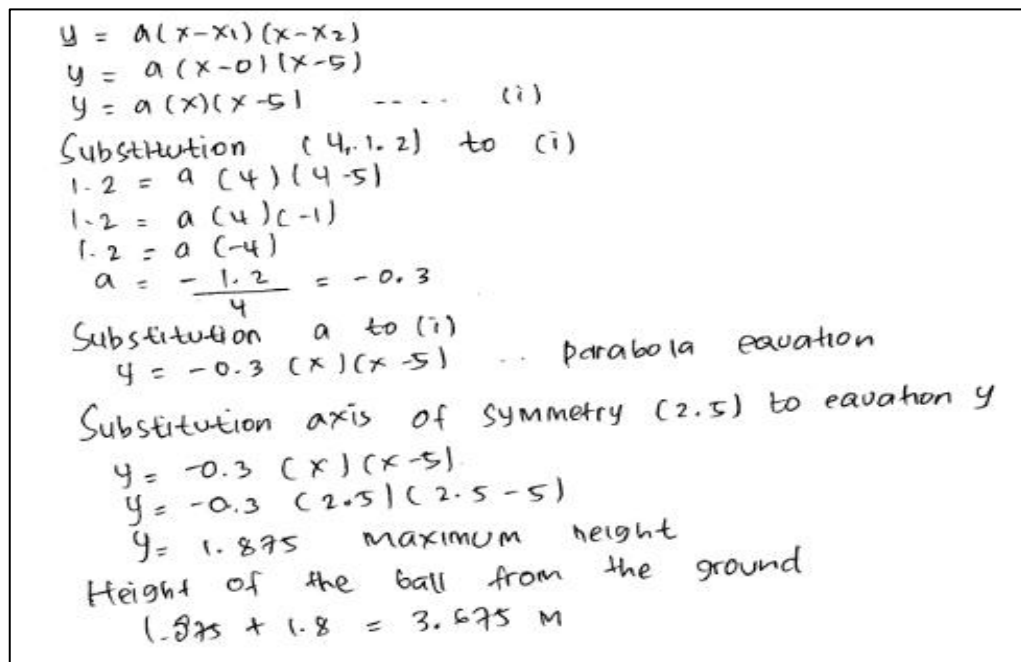 y = a(x-x1)(x-x2)
y = a(x-0)(x-5)
y = a(x)(x-5) ---- (i)
Substitution (4, 1.2) to (i)
1.2 = a (4)(4-5)
1.2 = a (4)(-1)
1.2 = a (-4)
a = - 1.2/4 = -0.3
Substitution a to (i)
y = -0.3 (x)(x-5) .. parabola equation
Substitution axis of symmetry (2.5) to equation y
y = -0.3 (x)(x-5)
y = -0.3 (2.5)(2.5-5)
y = 1.875 maximum height
Height of the ball from the ground
1.875 + 1.8 = 3.675 M